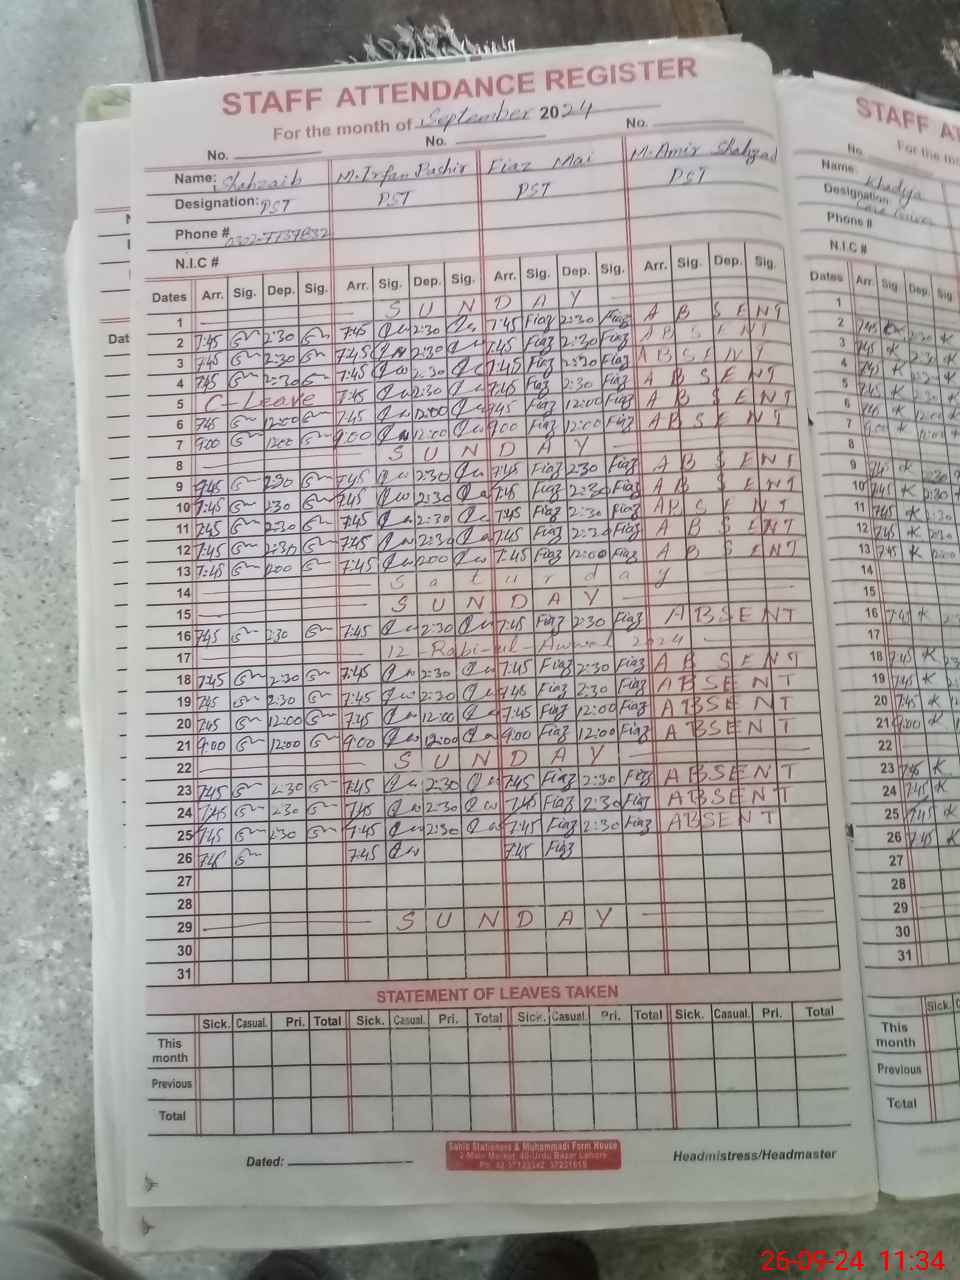 STAFF ATTENDANCE REGISTER
For the month of September 2024
No. No. No.
Name: Shahzaib M. Irfan Bashir Fiaz Mai M. Amir Shahzad
Designation: PST PST PST PST
Phone #
N.I.C #
Dates Arr. Sig. Dep. Sig. Arr. Sig. Dep. Sig. Arr. Sig. Dep. Sig. Arr. Sig. Dep. Sig.
1 SUNDAY
2 7:45 2:30 7:45 2:30 7:45 Fiaz 2:30 Fiaz ABSENT
3 7:45 2:30 7:45 2:30 7:45 Fiaz 2:30 Fiaz ABSENT
4 7:45 2:30 7:45 2:30 7:45 Fiaz 2:30 Fiaz ABSENT
5 C-Leave 7:45 2:30 7:45 Fiaz 2:30 Fiaz ABSENT
6 7:45 12:00 7:45 12:00 7:45 Fiaz 12:00 Fiaz ABSENT
7 9:00 12:00 9:00 12:00 9:00 Fiaz 12:00 Fiaz ABSENT
8 SUNDAY
9 7:45 2:30 7:45 2:30 7:45 Fiaz 2:30 Fiaz ABSENT
10 7:45 2:30 7:45 2:30 7:45 Fiaz 2:30 Fiaz ABSENT
11 7:45 2:30 7:45 2:30 7:45 Fiaz 2:30 Fiaz ABSENT
12 7:45 2:30 7:45 2:30 7:45 Fiaz 2:30 Fiaz ABSENT
13 7:45 7:45 7:45 Fiaz 12:00 Fiaz ABSENT
14 Saturday
15 SUNDAY
16 7:45 2:30 7:45 2:30 7:45 Fiaz 2:30 Fiaz ABSENT
17 12-Rabi-ul-Awwal 2024
18 7:45 2:30 7:45 2:30 7:45 Fiaz 2:30 Fiaz ABSENT
19 7:45 2:30 7:45 2:30 7:45 Fiaz 2:30 Fiaz ABSENT
20 7:45 12:00 7:45 12:00 7:45 Fiaz 12:00 Fiaz ABSENT
21 9:00 12:00 9:00 12:00 9:00 Fiaz 12:00 Fiaz ABSENT
22 SUNDAY
23 7:45 2:30 7:45 2:30 7:45 Fiaz 2:30 Fiaz ABSENT
24 7:45 2:30 7:45 2:30 7:45 Fiaz 2:30 Fiaz ABSENT
25 7:45 2:30 7:45 2:30 7:45 Fiaz 2:30 Fiaz ABSENT
26 7:45 7:45 7:45 Fiaz
27
28
29 SUNDAY
30
31
STATEMENT OF LEAVES TAKEN
Sick. Casual. Pri. Total Sick. Casual. Pri. Total Sick. Casual. Pri. Total Sick. Casual. Pri. Total
This month
Previous
Total
Dated:
Sahib Stationers & Muhammadi Form House
2-Main Market, 40-Urdu Bazar Lahore
Headmistress/Headmaster
STAFF AT
For the mo
No.
Name: Khadija
Designation: Care Giver
Phone #
N.I.C #
Dates Arr. Sig. Dep. Sig
1
2 7:45 K 2:30 K
3 7:45 K 2:30 K
4 7:45 K
5 7:45 K 2:30 K
6 7:45 K 12:00 K
7 9:00 K
8
9 7:45 K 2:30
10 7:45 K 2:30
11 7:45 K 2:30
12 7:45 K 2:30
13 7:45 K
14
15
16 7:45 K
17
18 7:45 K
19 7:45 K
20 7:45 K
21 9:00 K
22
23 7:45 K
24 7:45 K
25 7:45 K
26 7:45 K
27
28
29
30
31
Sick.
This month
Previous
Total
Dat
26-09-24 11:34